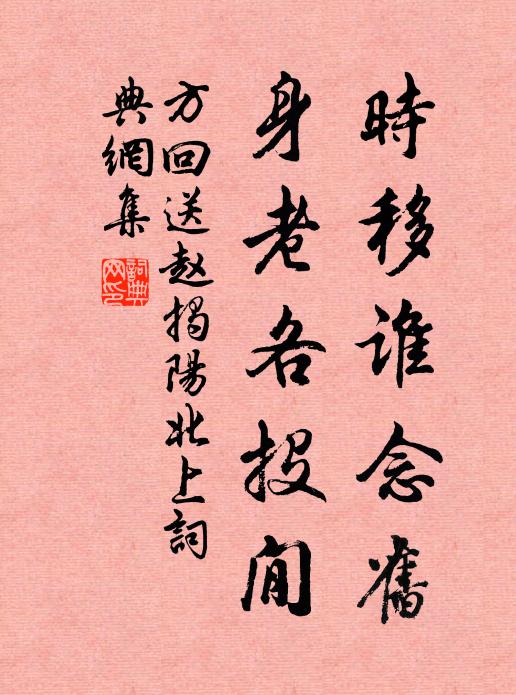 時移誰念舊
身老各投閒
方回送赵揭陽北上詞
典網集
詞典
网印